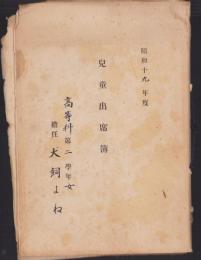 昭和十九年度
兒童出席簿
高等科第二學年女
擔任 犬飼よね